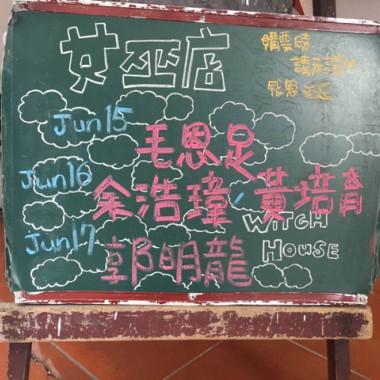 女巫店
購票時
請
感恩
Jun15
毛恩足
Jun16
余浩瑋、黃培育
WITCH
HOUSE
Jun17
郭明龍